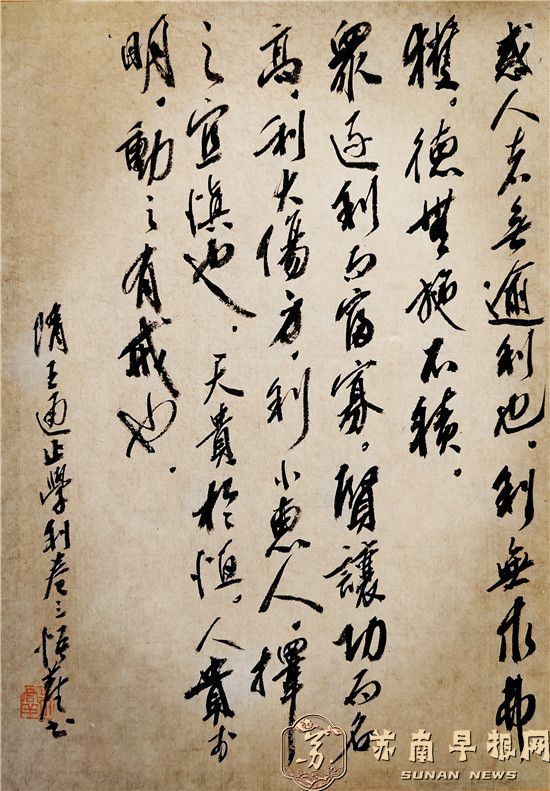 惑人者無逾利也，利無求弗
獲。德無施不積。
眾逐利而富寡。賢讓功而名
高，利大傷身，利小惠人，擇
之宜慎也，天貴於，人貴於
明，動之有戒也。
隋王通止學利卷三書
苏
苏南早报网
SUNAN NEWS